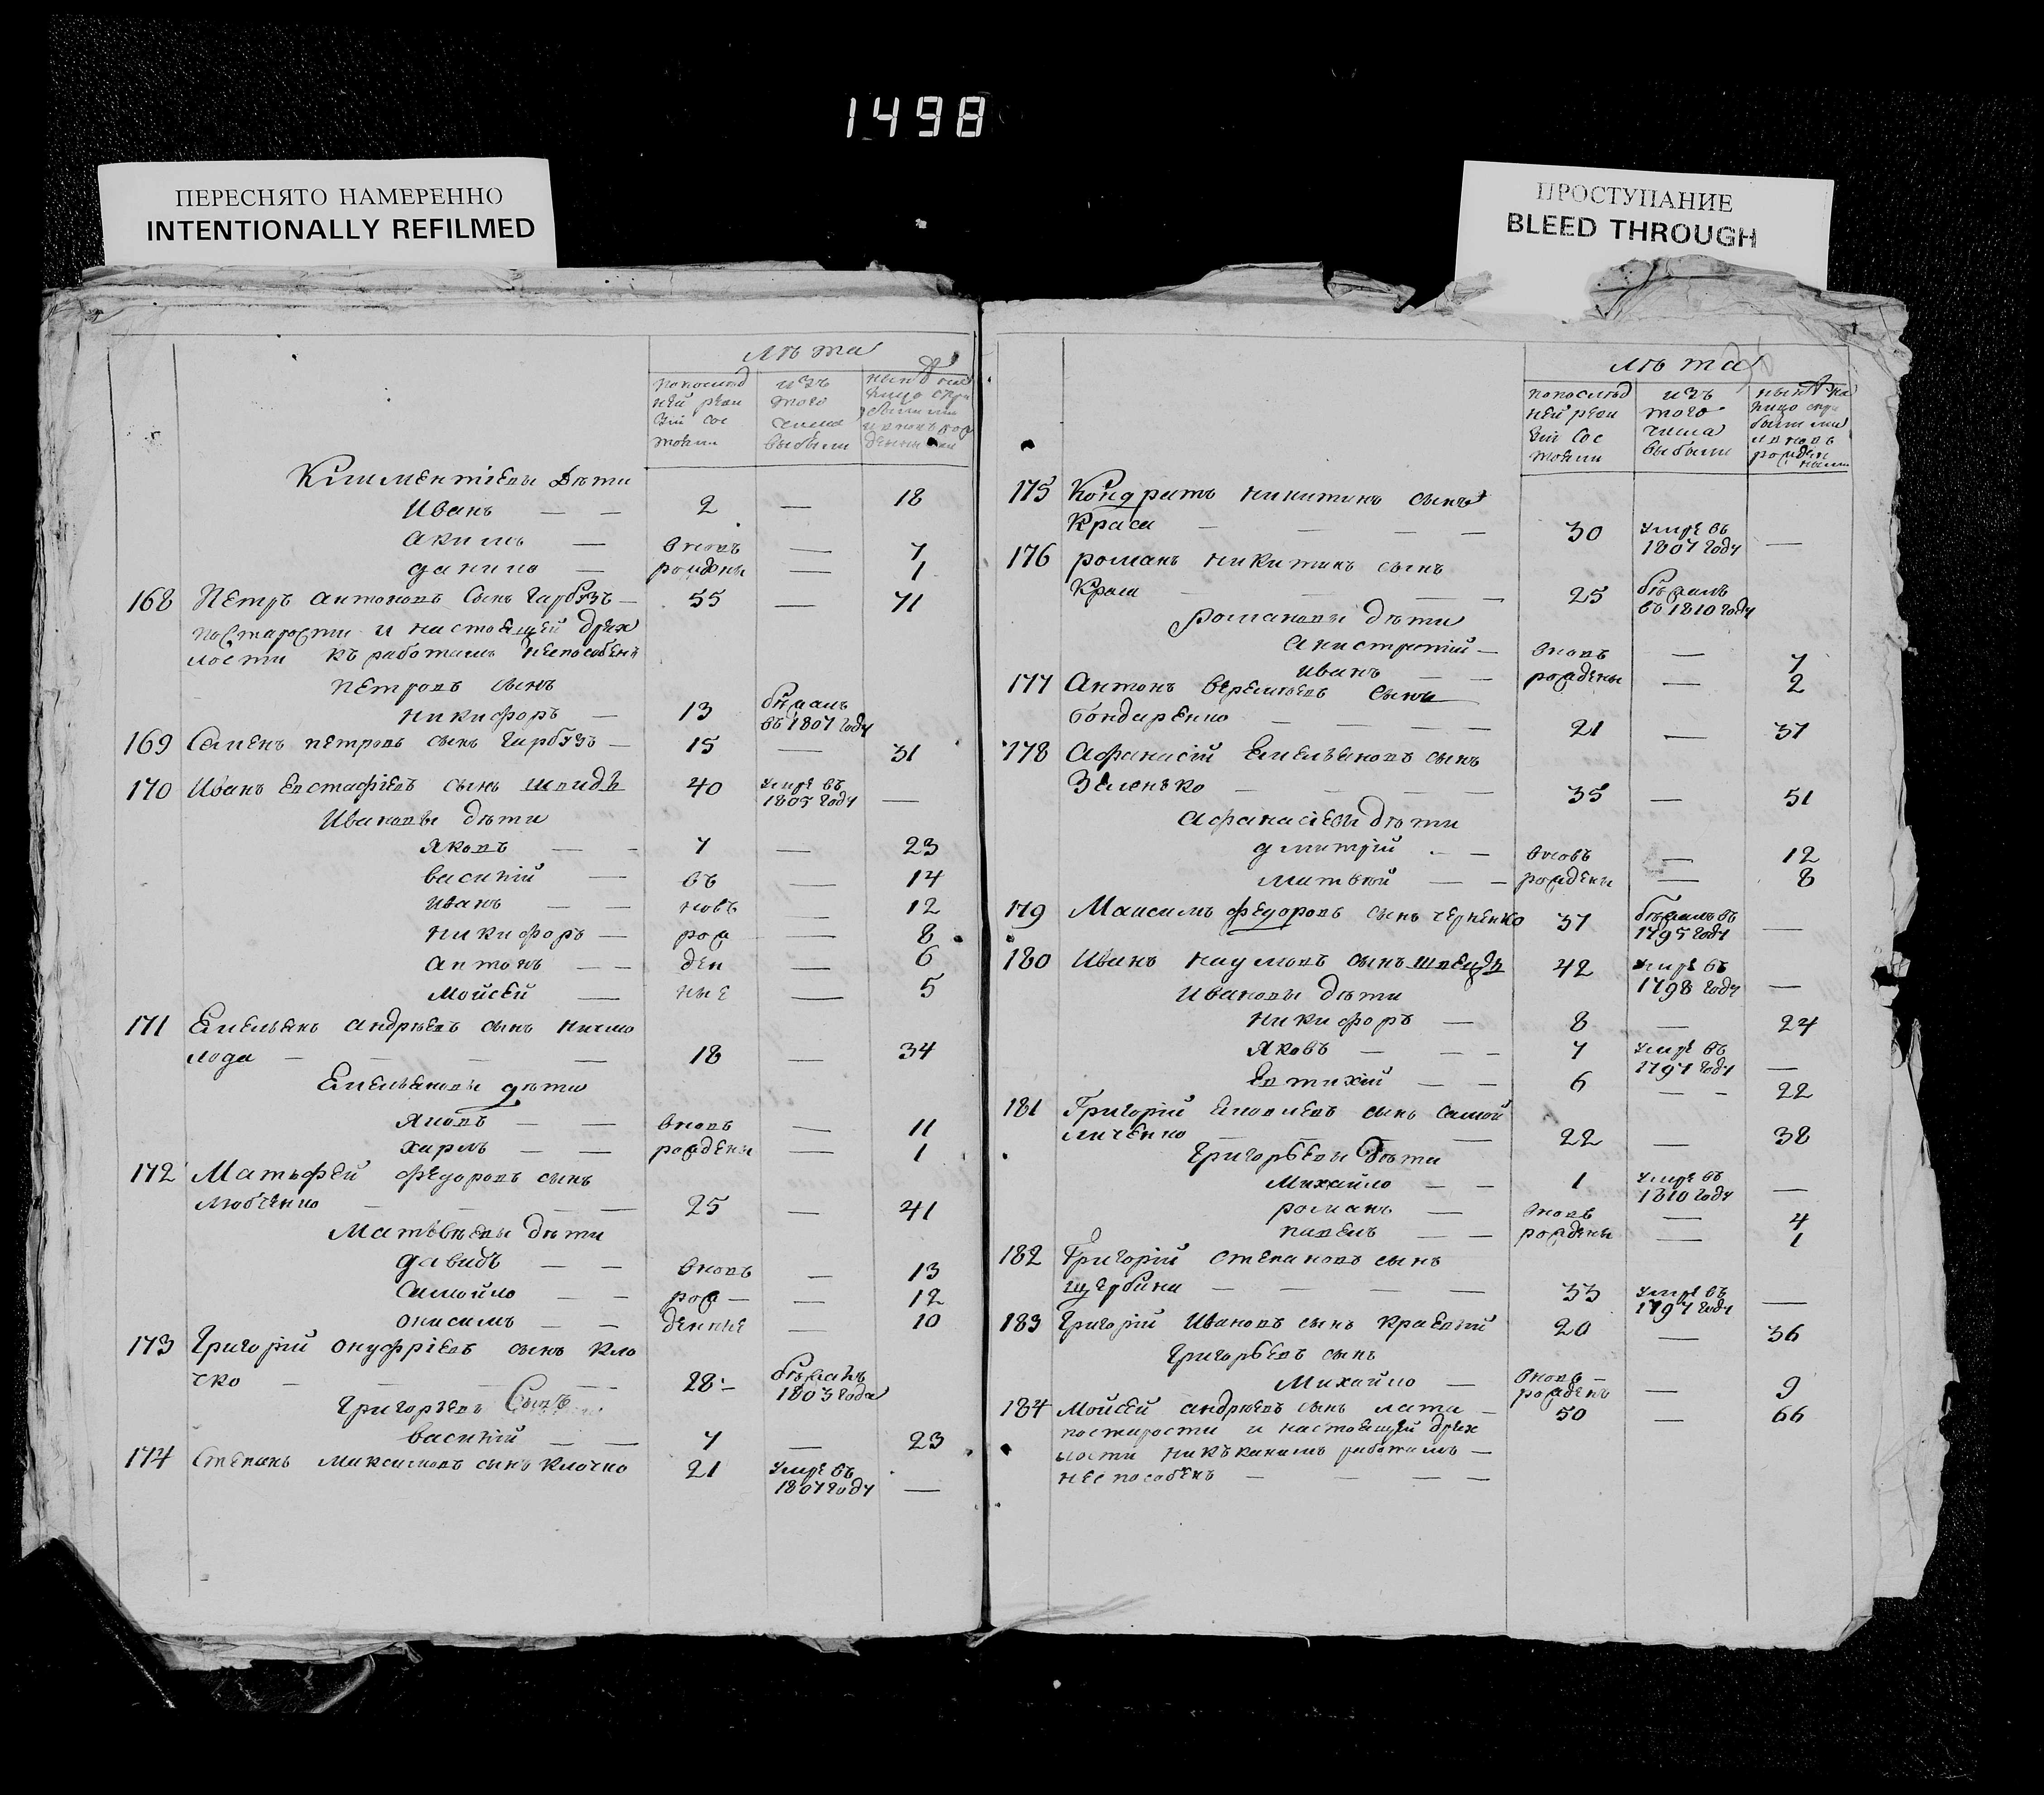 1498
ПЕРЕСНЯТО НАМЕРЕННО
INTENTIONALLY REFILMED
ПРОСТУПАНИЕ
BLEED THROUGH
лѣта
попослѣд изъ
ней реви того
зіи сос числа
тояли выбыли
Климентіевы дѣти
Иванъ — — 2 — 18
Акимъ — вновь — 7
данило — рождены — 1
168 Петръ антоновъ сынъ гарбузъ — 55 — 71
постарости и настоящей дрях
лости къ работамъ неспособенъ
петровъ сынъ
никифоръ — 13 бѣжалъ
въ 1807 году
169 Семенъ петровъ сынъ гарбузъ — 15 — 31
170 Иванъ евстафіевъ сынъ шведъ 40 умре въ
1805 году —
Ивановы дѣти
яковъ — — 7 — 23
василій — въ — 14
иванъ — — новь — 12
никифоръ — рож — 8
антонъ — — ден — 6
мойсей — ные — 5
171 Емельянъ андрѣевъ сынъ ничмо
лода — — — — 18 — 34
Емельяновы дѣти
яковъ — — вновь — 11
харло — — рождены — 1
172 Матьфей федоровъ сынъ
любченко — — — — 25 — 41
Матвѣевы дѣти
давидъ — — вновь — 13
самойло — — рож — — 12
онисимъ — — денные — 10
173 Григорій онуфріевъ сынъ кло
чко — — — — 28 — бѣжалъ
1803 года
григорьевъ Сынъ
василій — — 7 — 23
174 Степанъ максимовъ сынъ клочко 21 умре въ
1807 году —
лѣта
попослѣд изъ
ней реви того
зіи сос числа
тояли выбыли
175 Кондратъ никитинъ сынъ
Краса — — — — 30 умре въ
1807 году —
176 романъ никитинъ сынъ
Краса — — — — 25 бѣжалъ
въ 1810 году
романовы дѣти
анистратій — вновь — 7
иванъ — — рождены — 2
177 Антонъ веремѣевъ сынъ
бондаренко — — — 21 — 37
178 Афанасій Емельяновъ сынъ
Зеленько — — — — 35 — 51
афанасіевы дѣти
дмитрій — — вновь — 12
матвей — — рождены — 8
179 Максимъ федоровъ сынъ черненко 37 бѣжалъ въ
1795 году —
180 Иванъ наумовъ сынъ шведъ 42 умре въ
1798 году —
Ивановы дѣти
никифоръ — 8 — 24
яковъ — — — 7 умре въ
1797 году —
евтихій — — 6 — — 22
181 Григорій яковлевъ сынъ самой
личенко — — — 22 — 38
григорьевы дѣти
михайло — — 1 умре въ
1810 году —
романъ — вновь — 4
павелъ — — рождены — 1
182 Григорій степановъ сынъ
щербина — — — — 33 умре въ
1797 году —
183 Григорій Ивановъ сынъ краевый 20 — 36
григорьевъ сынъ
михайло — вновь —
рожденъ — 9
184 мойсей андрѣевъ сынъ лата — 50 — 66
постарости и настоящей дрях
лости никъкакимъ работамъ —
неспособенъ — — — —